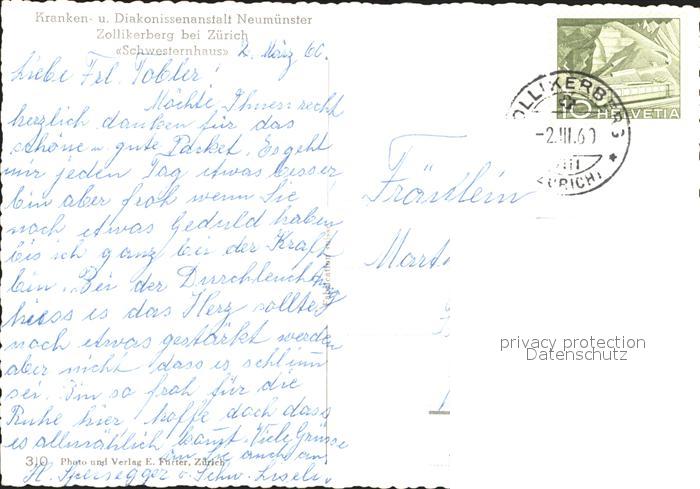 Kranken- u. Diakonissenanstalt Neumünster
Zollikerberg bei Zürich
«Schwesternhaus»
2. März 60.
Liebe Frl. Tobler!
Möchte Ihnen recht
herzlich danken für das
schöne u. gute Packet. Es geht
mir jeden Tag etwas besser
bin aber froh wenn Sie
noch etwas Geduld haben
bis ich ganz bei der Kraft
bin. Bei der Durchleuchtung
hiess es das Herz sollte
noch etwas gestärkt werden
aber nicht dass es schlimm
sei. Bin so froh für die
Ruhe hier, hoffe doch dass
es allmählich kommt. Viele Grüsse
an Sie auch von
310 Photo und Verlag E. Furter, Zürich
H. v. Schw. Liseli.
HELVETIA
10
ZOLLIKERBERG
-2.III.60
(ZÜRICH)
Fräulein
Mart
privacy protection
Datenschutz